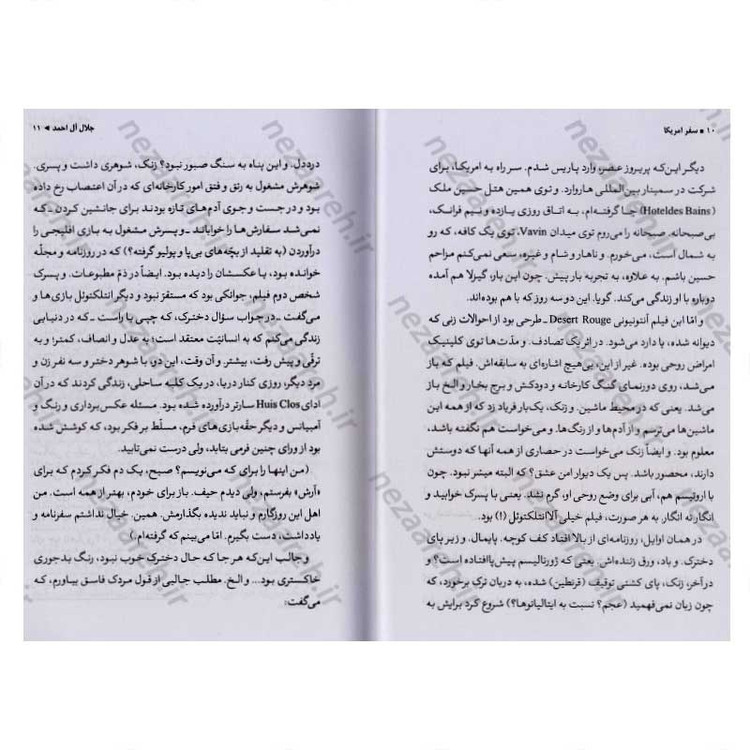 ۱۰ ■ سفر امریکا
دیگر این‌که پریروز عصر، وارد پاریس شدم. سر راه به امریکا، برای
شرکت در سمینار بین‌المللی هاروارد. و توی همین هتل حسین ملک
(Hoteldes Bains) جا گرفته‌ام، به اتاق روزی یازده و نیم فرانک،
بی‌صبحانه. صبحانه را می‌روم توی میدان Vavin، توی یک کافه، که رو
به شمال است، می‌خورم. و ناهار و شام و غیره، سعی نمی‌کنم مزاحم
حسین باشم. به علاوه، به تجربه بار پیش. چون این بار، گیرلا هم آمده
دوباره با او زندگی می‌کند. گویا. این دو سه روز که با هم بوده‌اند.
و امّا این فیلم آنتونیونی Desert Rouge ـ طرحی بود از احوالات زنی که
دیوانه شده، یا دارد می‌شود. در اثر یک تصادف. و مدّت‌ها توی کلینیک
امراض روحی بوده. غیر از این، بی‌هیچ اشاره‌ای به سابقه‌اش. فیلم که باز
می‌شد، روی دورنمای گنگ کارخانه و دودکش و برج بخار و الخ باز
می‌شد. یعنی که در محیط ماشین. و زنک، یک‌بار فریاد زد که از همه این
ماشین‌ها می‌ترسم و از آدم‌ها و از رنگ‌ها. و می‌خواست هم نگفته باشد،
معلوم بود. و ایضاً زنک می‌خواست در حصاری از همه آنها که دوستش
دارند، محصور باشد. پس یک دیوار امن عشق؟ که البته میسّر نبود. چون
با اروتیسم هم، آبی برای وضع روحی او، گرم نشد. یعنی با پسرک خوابید و
انگار نه انگار. به هر صورت، فیلم خیلی آلاانتلکتوئل (!) بود.
در همان اوایل، روزنامه‌ای از بالا افتاد کف کوچه. پایمال. و زیر پای
دخترک. و باد، ورق زننده‌اش. یعنی که ژورنالیسم پیش‌پاافتاده است؟ و
در آخر، زنک، پای کشتی توقیف (قرنطین) شده، به دریان ترک برخورد، که
چون زبان نمی‌فهمید (عجم؟ نسبت به ایتالیانوها؟) شروع کرد برایش به
جلال آل احمد ◄ ۱۱
درددل. و این پناه به سنگ صبور نبود؟ زنک، شوهری داشت و پسری.
شوهرش مشغول به رتق و فتق امور کارخانه‌ای که در آن اعتصاب رخ داده
بود و در جست و جوی آدم‌های تازه بودند برای جانشین کردن ـ که
نمی‌شد سفارش‌ها را خواباند ـ و پسرش مشغول به بازی افلیجی را
درآوردن (به تقلید از بچّه‌های بی‌پا و پولیو گرفته؟) که در روزنامه و مجلّه
خوانده بود، یا عکسشان را دیده بود. ایضاً در ذمّ مطبوعات. و پسرک
شخص دوم فیلم، جوانکی بود که مستقرّ نبود و دیگر انتلکتوئل بازی‌ها و
می‌گفت ـ در جواب سؤال دخترک، که چپی یا راست ـ که در دنیایی
زندگی می‌کنم که به انسانیّت معتقد است؛ به عدل و انصاف، کمتر؛ و به
ترقّی و پیش رفت، بیشتر. و آن وقت، این دو، با شوهر دختر و سه نفر زن و
مرد دیگر، روزی کنار دریا، در یک کلبه ساحلی، زندگی کردند که در آن
ادای Huis Clos سارتر درآورده شده بود. مسئله عکس‌برداری و رنگ و
آمبیانس و دیگر حقّه‌بازی‌های فرم، مسلّط بر فکر بود، که کوشش شده
بود از ورای چنین فرمی بتابد، ولی درست نمی‌تابید.
(من اینها را برای که می‌نویسم؟ صبح، یک دم فکر کردم که برای
«آرش» بفرستم، ولی دیدم حیف. باز برای خودم، بهتر از همه است. من
اهل این روزگارم و نباید ندیده بگذارمش. همین. خیال نداشتم سفرنامه و
یادداشت، دست بگیرم. امّا می‌بینم که گرفته‌ام.)
و جالب این‌که هر جا که حال دخترک خوب نبود، رنگ بدجوری
خاکستری بود... و الخ. مطلب جالبی از قول مردک فاسق بیاورم، که
می‌گفت:
nezaareh.ir